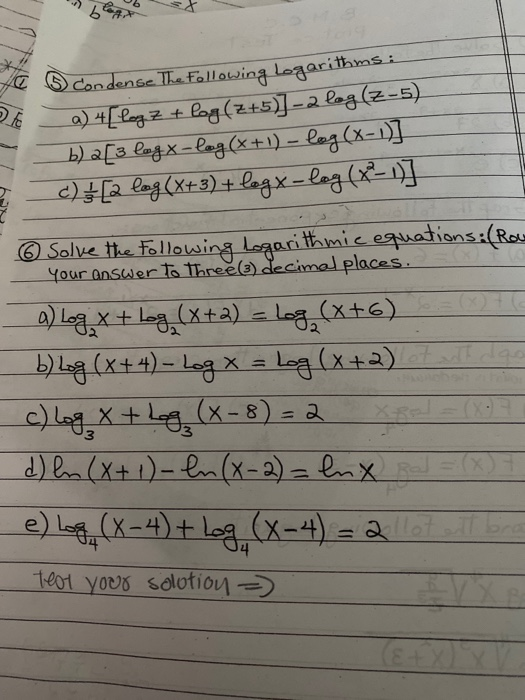 b^log_b x = x
⑤ Condense The Following Logarithms:
a) 4[log z + log(z+5)] - 2 log(z-5)
b) 2[3 log x - log(x+1) - log(x-1)]
c) 1/3 [2 log(x+3) + log x - log(x²-1)]
⑥ Solve the Following Logarithmic equations: (Rou
your answer to Three(3) decimal places.
a) log₂ x + log₂ (x+2) = log₂ (x+6)
b) log (x+4) - log x = log (x+2)
c) log₃ x + log₃ (x-8) = 2
d) ln (x+1) - ln (x-2) = ln x
e) log₄ (x-4) + log₄ (x-4) = 2
test your solution ⇒